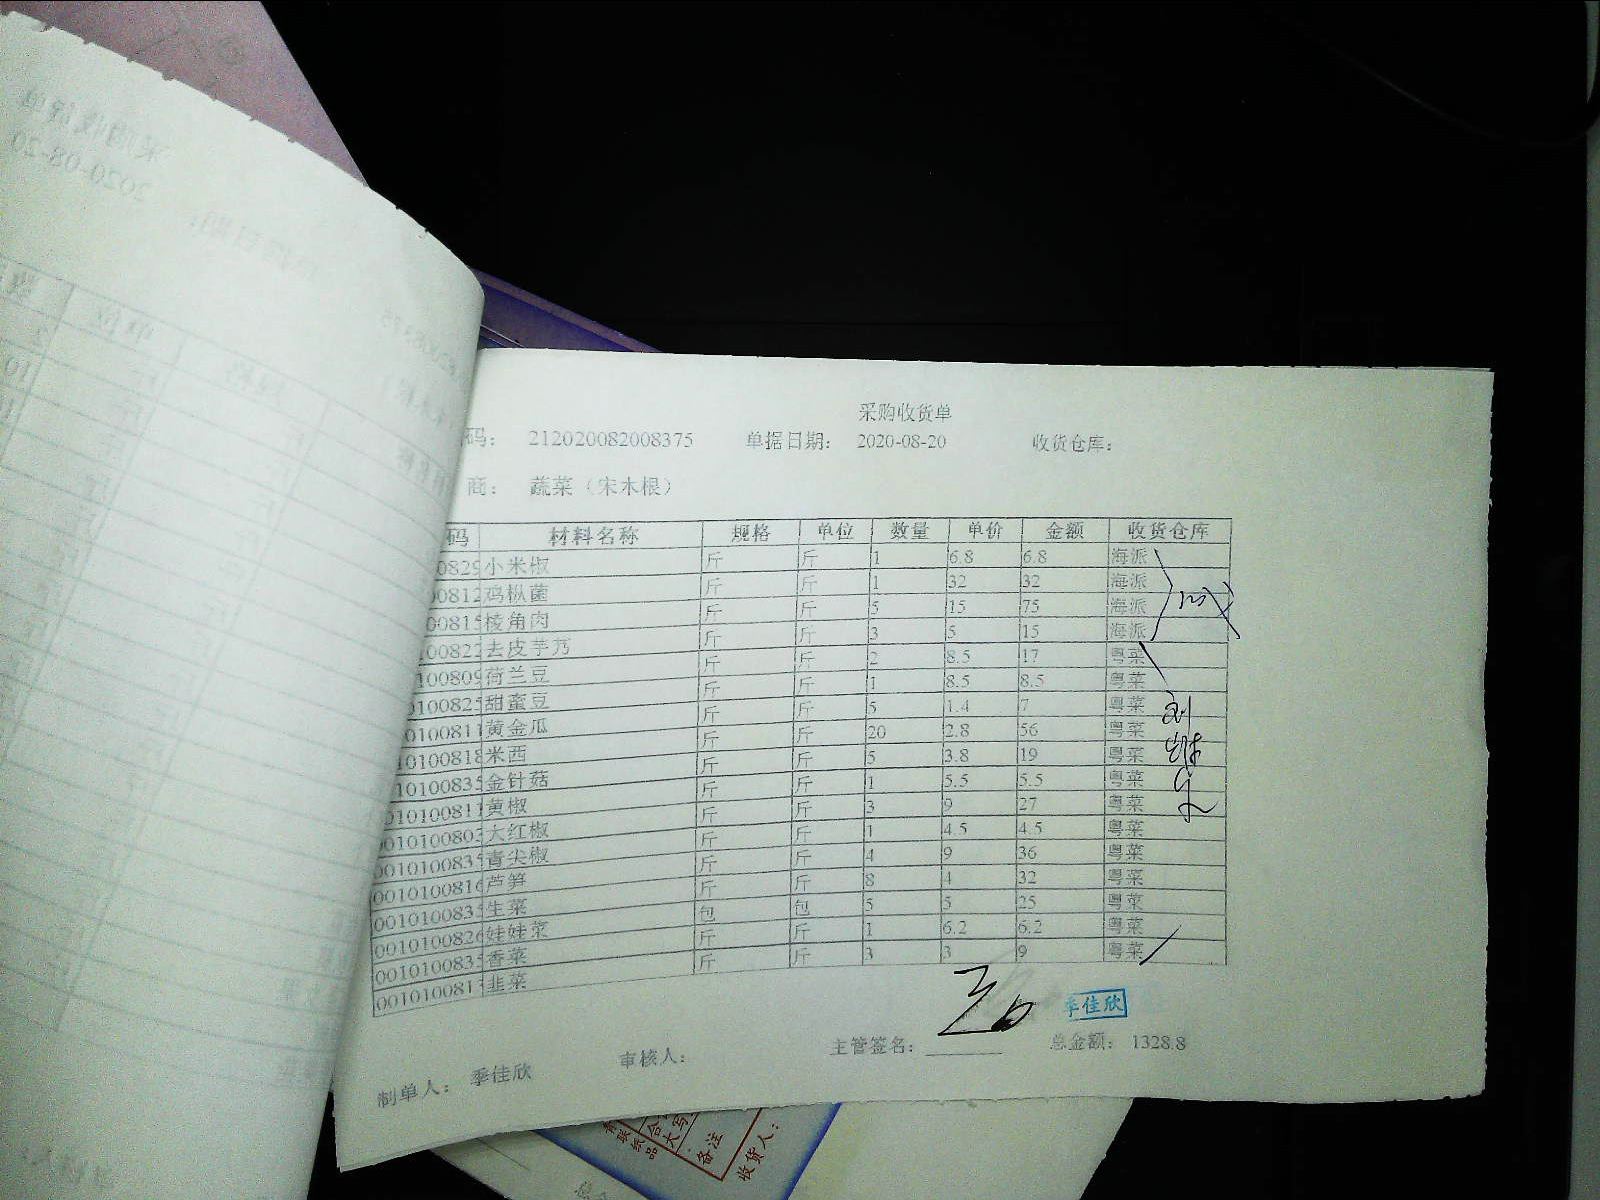 采购收货单
码： 212020082008375 单据日期： 2020-08-20 收货仓库：
商： 蔬菜（宋木根）
码 材料名称 规格 单位 数量 单价 金额 收货仓库
00829 小米椒 斤 斤 1 6.8 6.8 海派
00812 鸡枞菌 斤 斤 1 32 32 海派
00815 棱角肉 斤 斤 5 15 75 海派
00822 去皮芋艿 斤 斤 3 5 15 海派
100809 荷兰豆 斤 斤 2 8.5 17 粤菜
0100825 甜蜜豆 斤 斤 1 8.5 8.5 粤菜
0100811 黄金瓜 斤 斤 5 1.4 7 粤菜
10100818 米西 斤 斤 20 2.8 56 粤菜
10100835 金针菇 斤 斤 5 3.8 19 粤菜
010100811 黄椒 斤 斤 1 5.5 5.5 粤菜
0010100803 大红椒 斤 斤 3 9 27 粤菜
0010100835 青尖椒 斤 斤 1 4.5 4.5 粤菜
0010100816 芦笋 斤 斤 4 9 36 粤菜
0010100835 生菜 斤 斤 8 4 32 粤菜
0010100826 娃娃菜 包 包 5 5 25 粤菜
0010100835 香菜 斤 斤 1 6.2 6.2 粤菜
001010081 韭菜 斤 斤 3 3 9 粤菜
季佳欣
制单人： 季佳欣 审核人： 主管签名： 总金额： 1328.8
合大写
备注
收货人：